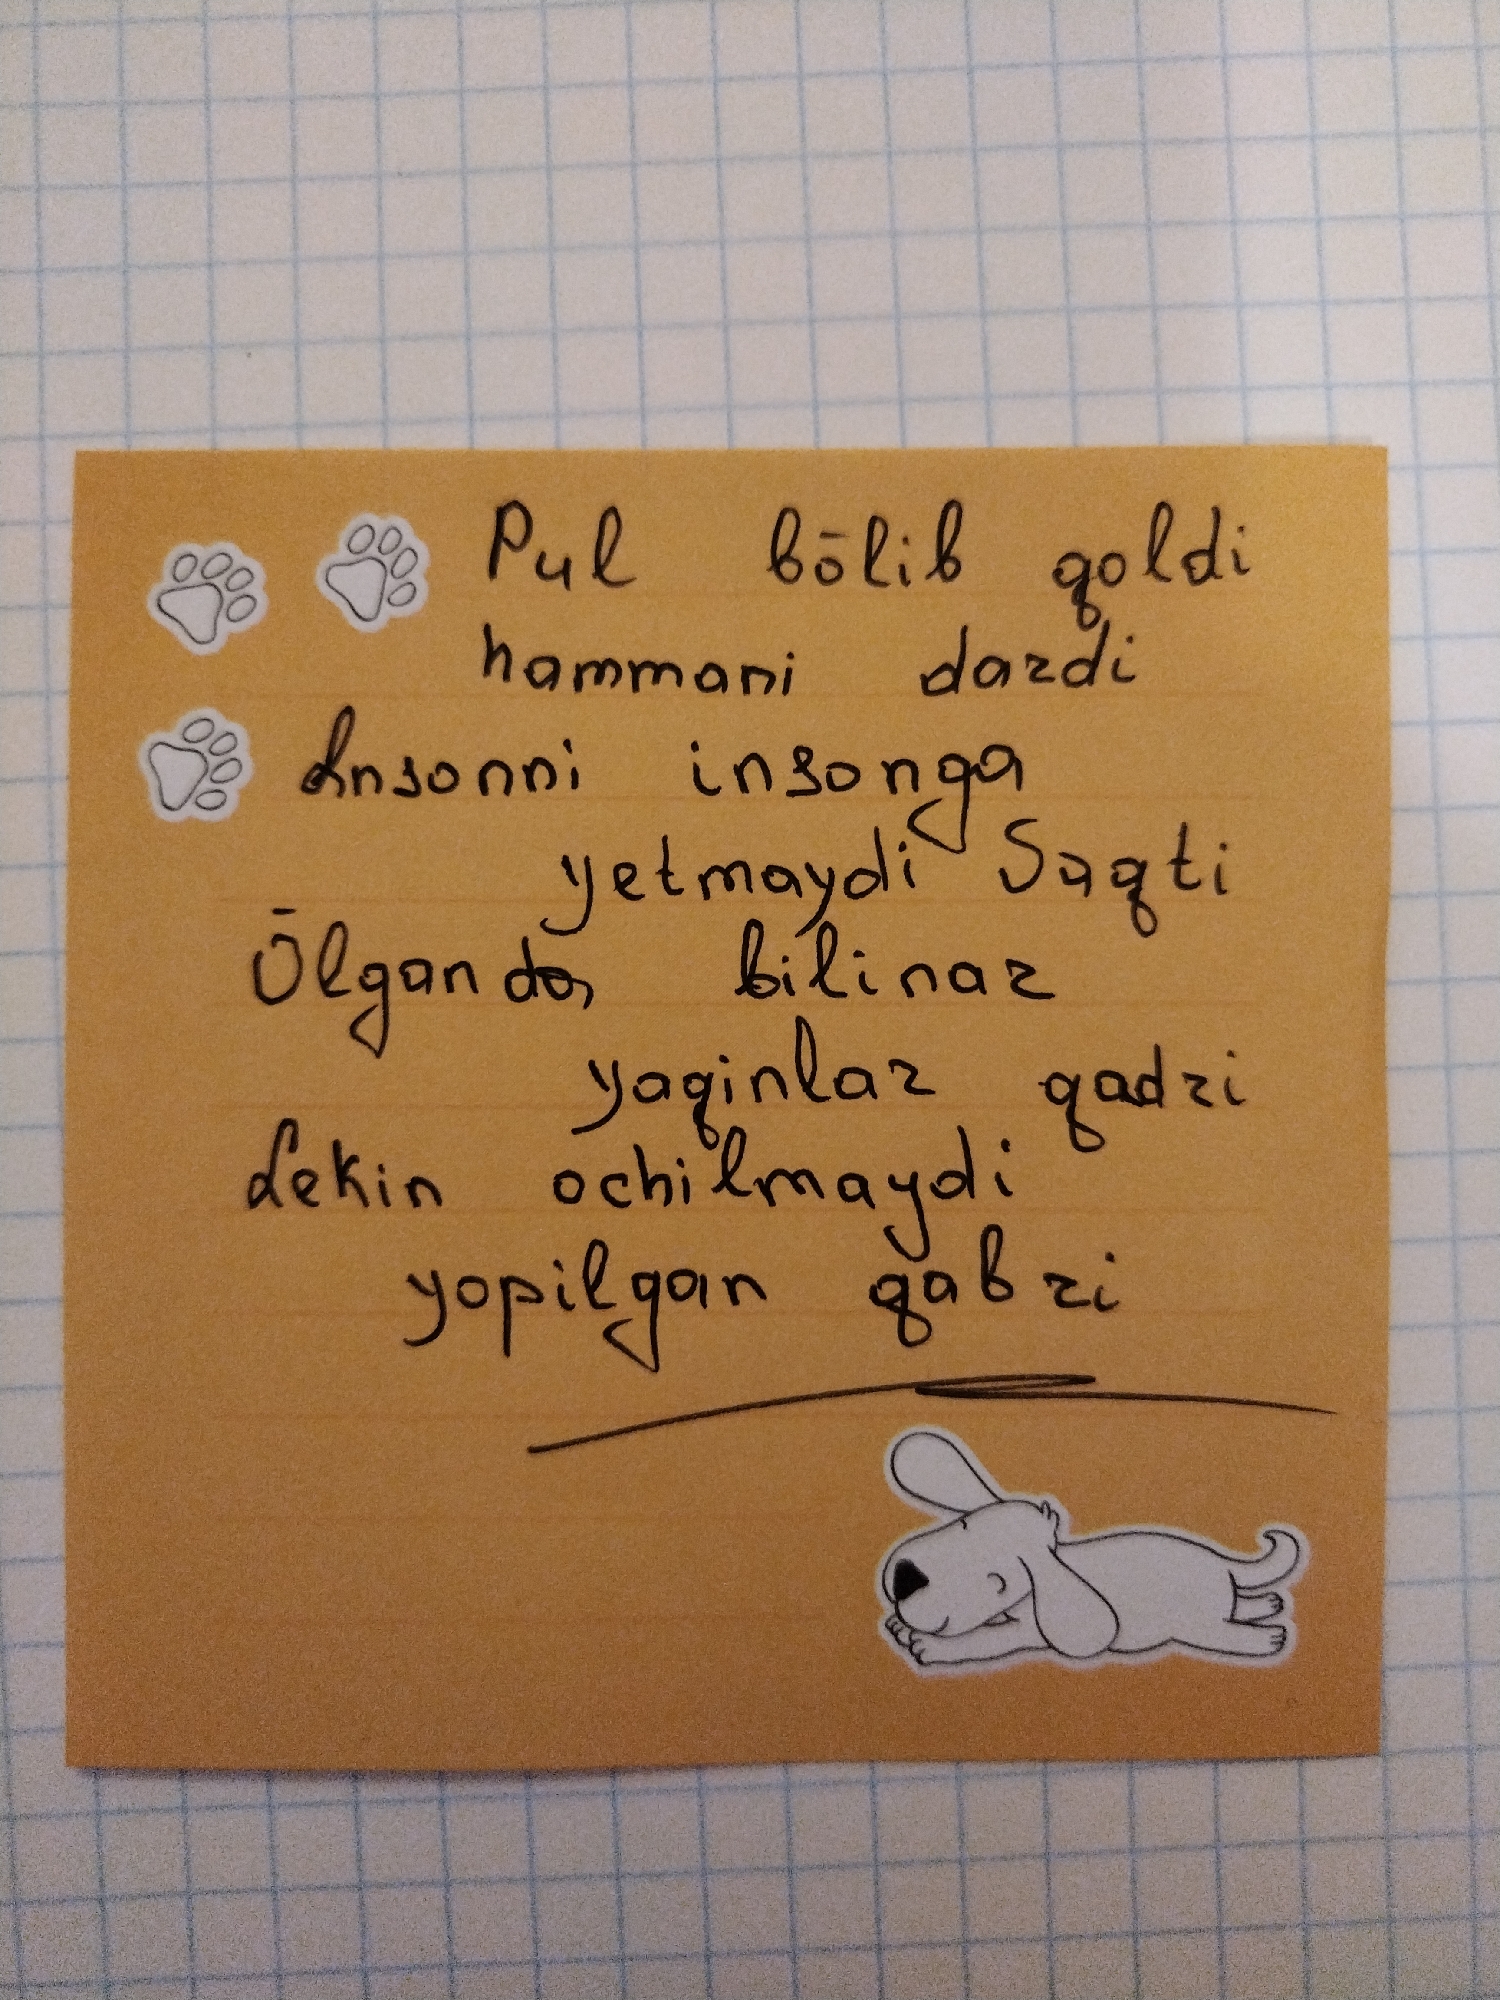 Pul bōlib qoldi
hammani dardi
Insonni insonga
yetmaydi Saqti
Ōlganda bilinar
yaqinlar qadri
Lekin ochilmaydi
yopilgan qabri